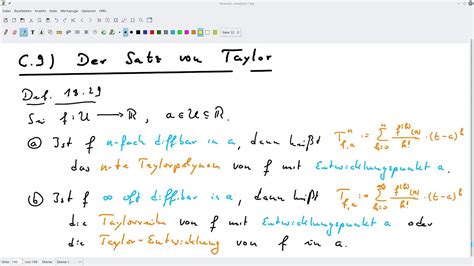 Datei Bearbeiten Ansicht
C.9) Der Satz von Taylor
Def. 18.29
Sei f: U → ℝ, a ∈ U ⊆ ℝ.
(a) Ist f n-fach diffbar in a, dann heißt T^n_{f,a} := ∑_{k=0}^{n} f^{(k)}(a)/k! · (t-a)^k
das n-te Taylorpolynom von f mit Entwicklungspunkt a.
(b) Ist f ∞ oft diffbar in a, dann heißt T_{f,a} := ∑_{k=0}^{∞} f^{(k)}(a)/k! · (t-a)^k
die Taylorreihe von f mit Entwicklungspunkt a oder
die Taylor-Entwicklung von f in a.